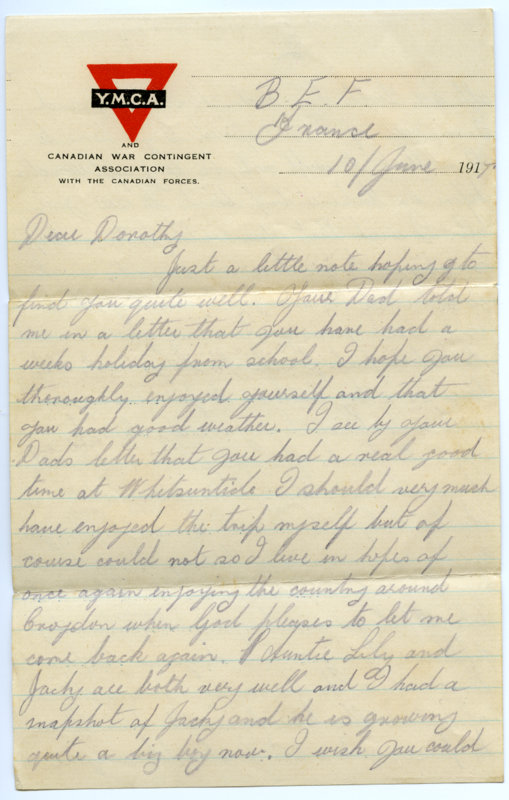 Y.M.C.A.
AND
CANADIAN WAR CONTINGENT
ASSOCIATION
WITH THE CANADIAN FORCES.
B E F
France
10/June 1917
Dear Dorothy
Just a little note hoping to
find you quite well. Your Dad told
me in a letter that you have had a
weeks holiday from school. I hope you
thoroughly enjoyed yourself and that
you had good weather. I see by your
Dads letter that you had a real good
time at Whitsuntide I should very much
have enjoyed the trip myself but of
course could not so I live in hopes of
once again enjoying the country around
Croydon when God pleases to let me
come back again. Auntie Lily and
Jacky are both very well and I had a
snapshot of Jacky and he is growing
quite a big boy now. I wish you could